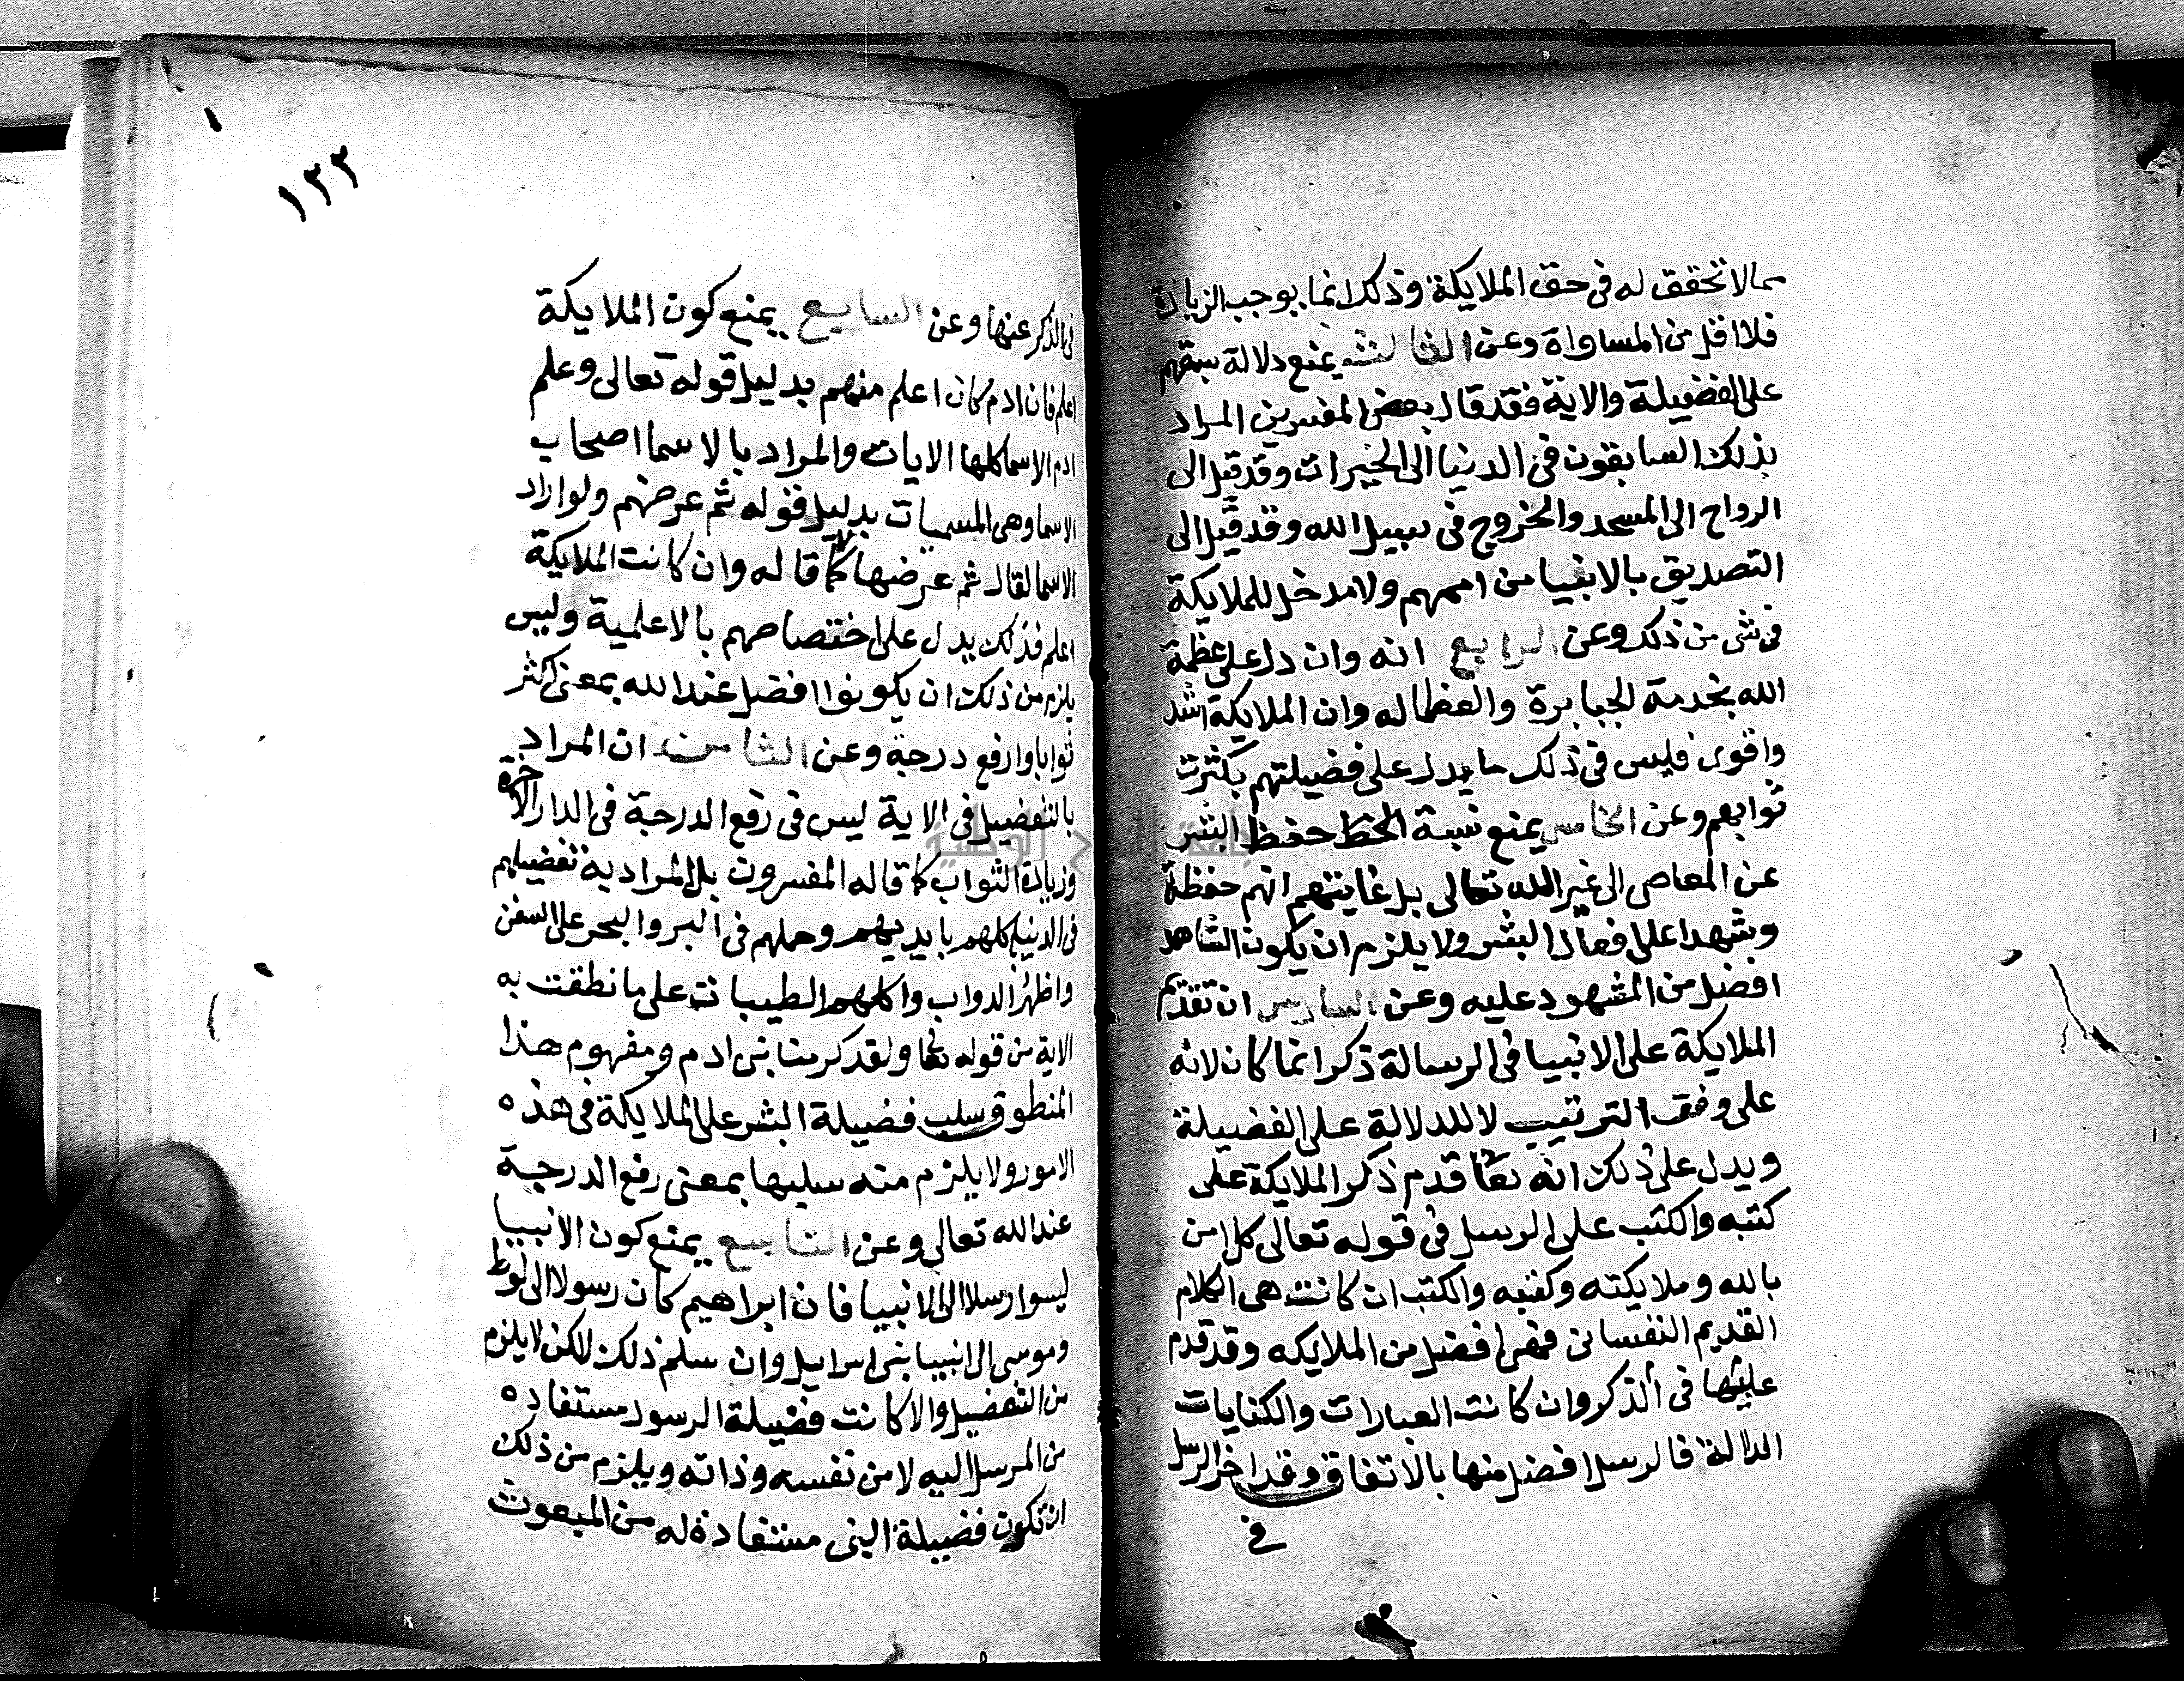 مما لا تحقق له في حق الملايكة وذلك انما يوجب الزيادة
فلا اقل من المساواة وعن الثالث يمنع دلالة سبقهم
على الفضيلة والاية فقد قال بعض المفسرين المراد
بذلك السابقون في الدنيا الى الخيرات وقد قيل الى
الرواح الى المسجد والخروج في سبيل الله وقد قيل الى
التصديق بالانبيا من اممهم ولا مدخل للملايكة
في شي من ذلك وعن الرابع انه وان دل على عظمة
الله بخدمة الجبابرة والعظما له وان الملايكة اشد
واقوى فليس في ذلك ما يدل على فضيلتهم بكثرت
ثوابهم وعن الخامس يمنع نسبة الحظ حفظ البشر
عن المعاصي الى غير الله تعالى بل غايتهم انهم حفظة
وشهدا على افعال البشر ولا يلزم ان يكون الشاهد
افضل من المشهود عليه وعن السادس ان تقديم
الملايكة على الانبيا في الرسالة ذكرا انما كان لانه
على وفق الترتيب لا للدلالة على الفضيلة
ويدل على ذلك انه تعا قدم ذكر الملايكة على
كتبه والكتب على الرسل في قوله تعالى كل امن
بالله وملايكته وكتبه والكتب ان كانت هي الكلام
القديم النفساني فهي افضل من الملايكه وقد قدم
عليها في الذكر وان كانت العبارات والكتابات
الدلالة فالرسل افضل منها بالاتفاق وقد اخر الرسل
في
١٢٢
في الذكر عنها وعن السابع يمنع كون الملايكة
اعلم فان ادم كان اعلم منهم بدليل قوله تعالى وعلم
ادم الاسما كلها الايات والمراد بالاسما اصحاب
الاسما وهي المسميات بدليل قوله ثم عرضهم ولو اراد
الاسما لقال ثم عرضها كما قاله وان كانت الملايكة
اعلم فذلك يدل على اختصاصهم بالاعلمية وليس
يلزم من ذلك ان يكونوا افضل عند الله بمعنى اكثر
ثوابا وارفع درجة وعن الثامن ان المراد
بالتفضيل في الاية ليس في رفع الدرجة في الدار الاخرة
وزيادة الثواب كما قاله المفسرون بل المراد به تفضيلهم
في الدنيا باكلهم بايديهم وحملهم في البر والبحر على السفن
واظهر الدواب واكلهم الطيبات على ما نطقت به
الاية من قوله تعا ولقد كرمنا بني ادم ومفهوم هذا
المنطوق سلب فضيلة البشر على الملايكة في هذه
الامور ولا يلزم منه سلبها بمعنى رفع الدرجة
عند الله تعالى وعن التاسع يمنع كون الانبيا
ليسوا رسلا الى الانبيا فان ابراهيم كان رسولا الى لوط
وموسى الى انبيا بني اسرايل وان سلم ذلك لكن لا يلزم
من التفضيل والا كانت فضيلة الرسول مستفاده
من المرسل اليه لا من نفسه وذاته ويلزم من ذلك
ان تكون فضيلة النبي مستفادة له من المبعوث